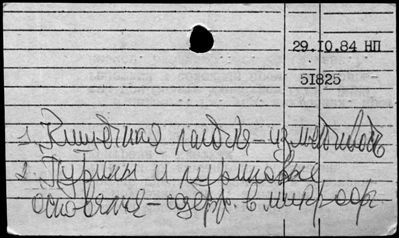 29.10.84 НП
51825
1. Кишечная палочка - из метиводъ
2. Пурины и пуриновые
основания - содерж. в микроорг